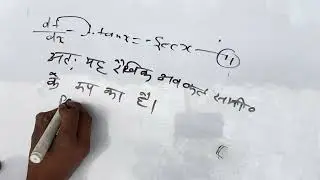 dt/dx - t.tanx = -secx — (1)
अतः यह रैखिक अवकल समी०
के रूप का है।